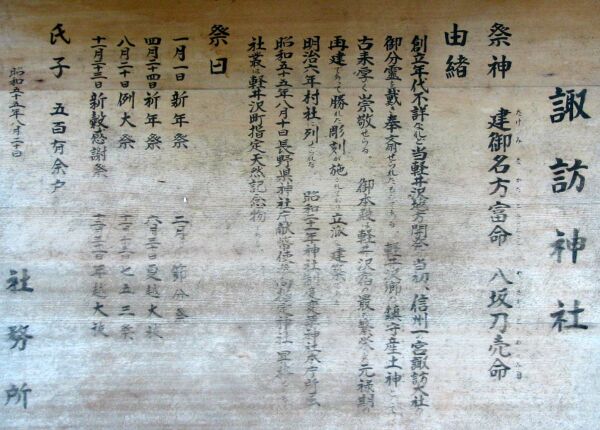 諏訪神社
祭神 建御名方富命 八坂刀売命
由緒
創立年代不詳なれど当軽井沢地方開発の当初、信州一宮諏訪大社
御分霊を戴き奉斎せられたものである 軽井沢郷の鎮守産土神として
古来厚く崇敬せらる 御本殿は軽井沢宿の最も繁栄した元禄期
再建であって勝れた彫刻が施されており立派な建築である
明治六年村社に列せられる 昭和二十一年神社制度変更神社本庁所属
昭和五十五年八月十日長野県神社庁献幣使参向指定神社
社叢は軽井沢町指定天然記念物である
祭日
一月一日新年祭 二月 節分祭
四月二十四日祈年祭 六月三十日夏越大祓
八月二十日例大祭 十一月十五日七五三祭
十一月二十三日新穀感謝祭 十二月三十一日年越大祓
氏子 五百有余戸
昭和五十五年八月二十日
社務所